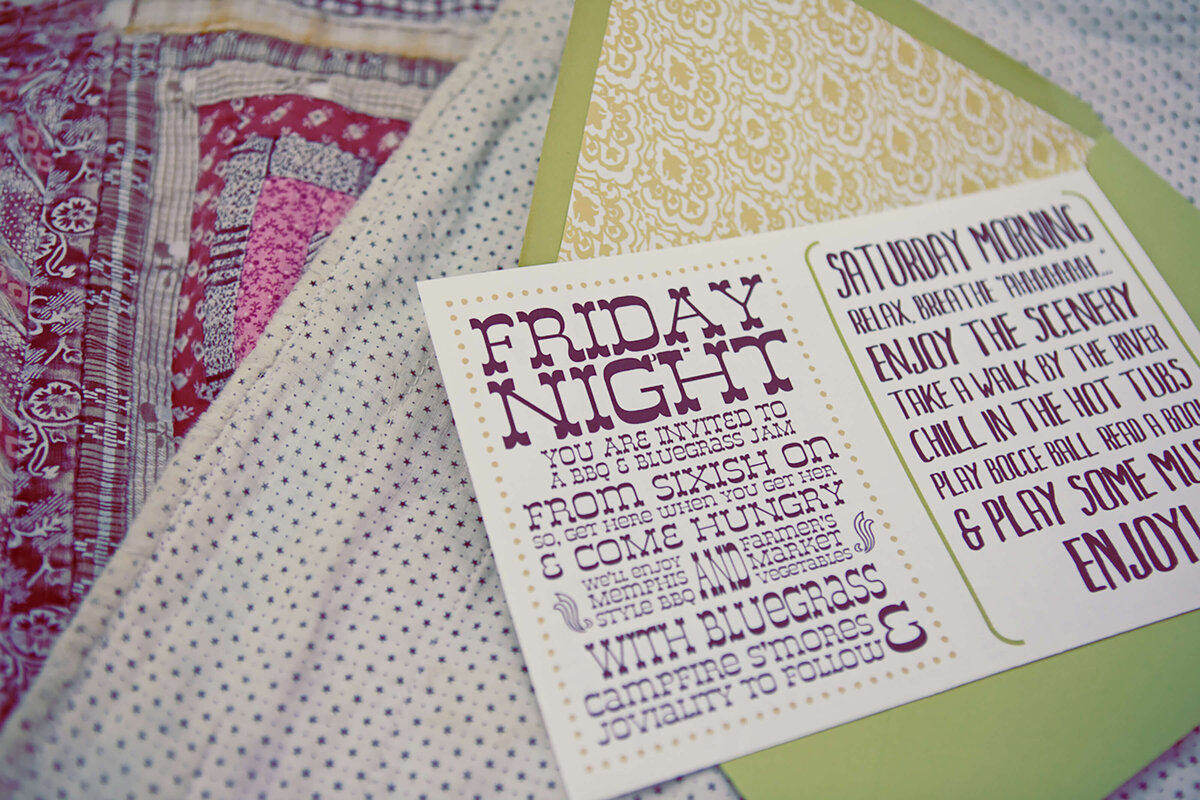 FRIDAY
NIGHT
YOU ARE INVITED TO
A BBQ & BLUEGRASS JAM
FROM SIXISH ON
SO, GET HERE WHEN YOU GET HER
& COME HUNGRY
WE'LL ENJOY
MEMPHIS
STYLE BBQ
AND
FARMER'S
MARKET
VEGETABLES
WITH BLUEGRASS
CAMPFIRE S'MORES &
JOVIALITY TO FOLLOW
SATURDAY MORNING
RELAX, BREATHE "AHHHHHH..."
ENJOY THE SCENERY
TAKE A WALK BY THE RIVER
CHILL IN THE HOT TUBS
PLAY BOCCE BALL READ A BOO
& PLAY SOME MU
ENJOY!